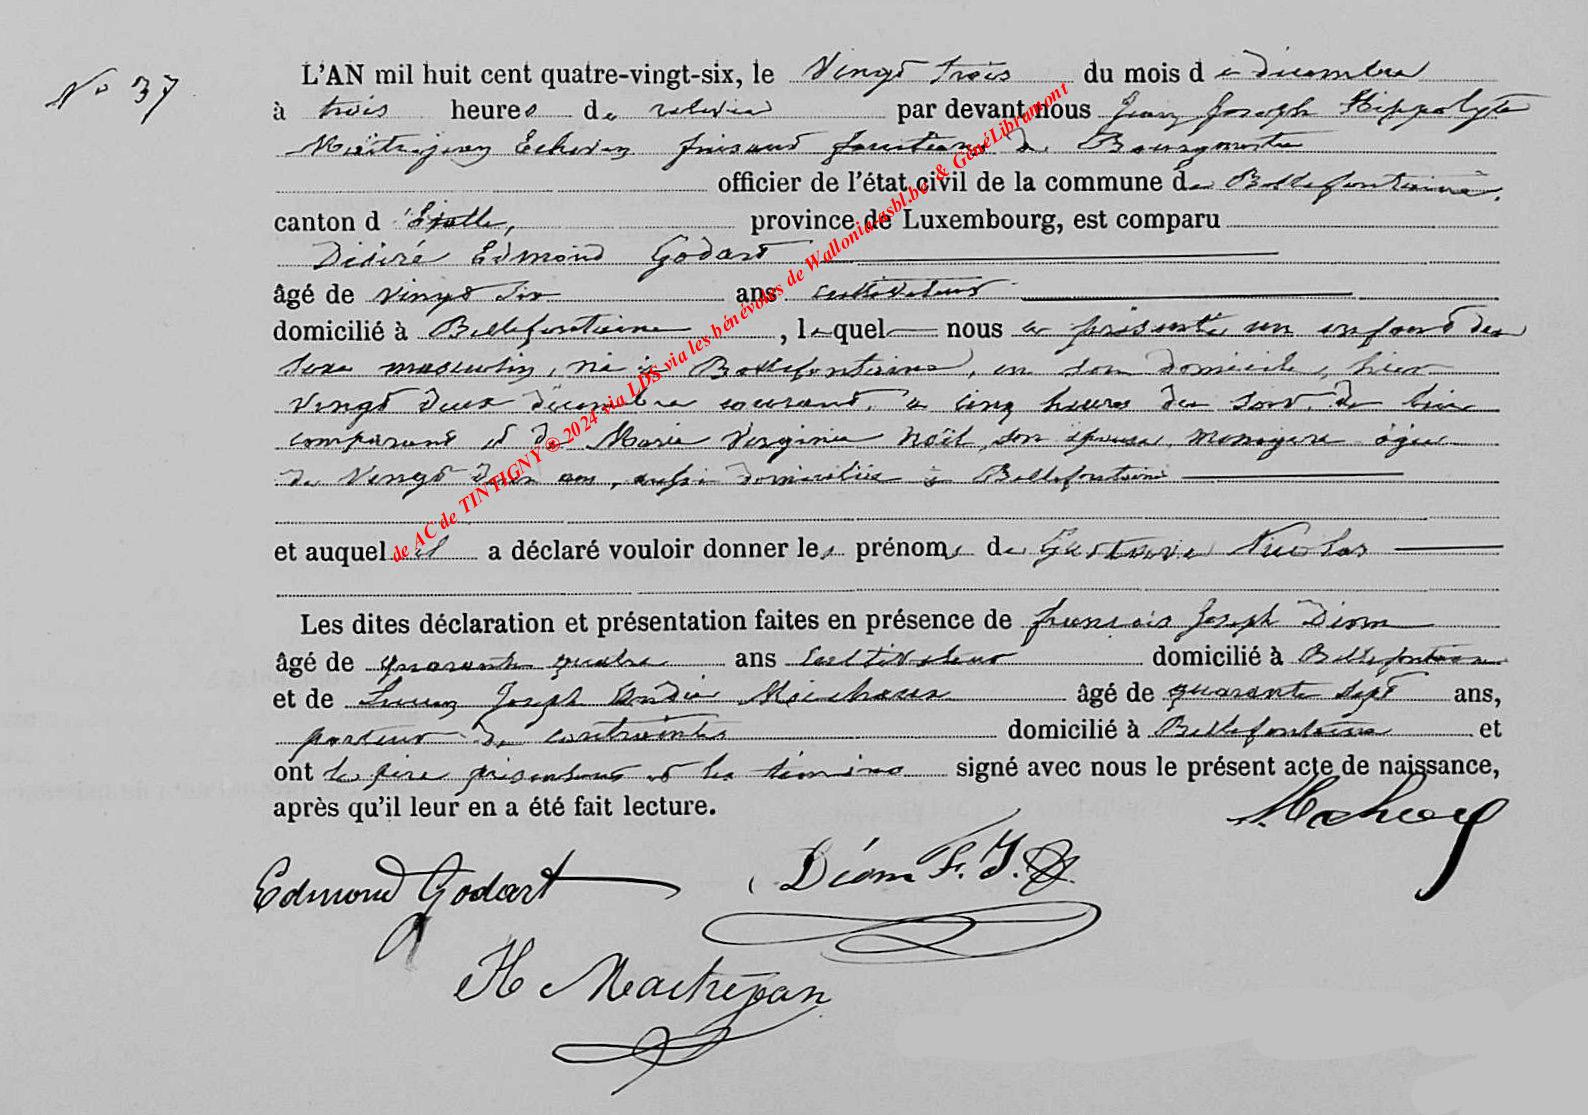 N° 37
L'AN mil huit cent quatre-vingt-six, le Vingt trois du mois de Décembre
à trois heures de relevée par devant nous Jean Joseph Hippolyte
Maîtrejean Echevin faisant fonctions de Bourgmestre
officier de l'état civil de la commune de Bellefontaine,
canton d'Etalle, province de Luxembourg, est comparu
Désiré Edmond Godart
âgé de vingt six ans cultivateur
domicilié à Bellefontaine, lequel nous a présenté un enfant du
sexe masculin, né à Bellefontaine, en son domicile, hier
vingt deux décembre courant, à cinq heures du soir, de lui
comparant et de Marie Virginie Noël, son épouse, ménagère âgée
de Vingt deux ans, aussi domiciliée à Bellefontaine
et auquel il a déclaré vouloir donner les prénoms de Gustave Nicolas
Les dites déclaration et présentation faites en présence de françois Joseph Diom
âgé de quarante quatre ans Cultivateur domicilié à Bellefontaine
et de Joseph André âgé de quarante sept ans,
porteur de contraintes domicilié à Bellefontaine et
ont le père présentant et les témoins signé avec nous le présent acte de naissance,
après qu'il leur en a été fait lecture.
Edmond Godart
Diom F. J.
H Maitrejean
de AC de TINTIGNY © 2024 via LDS via les bénévoles de Wallonia-asbl.be & GénéLibramont